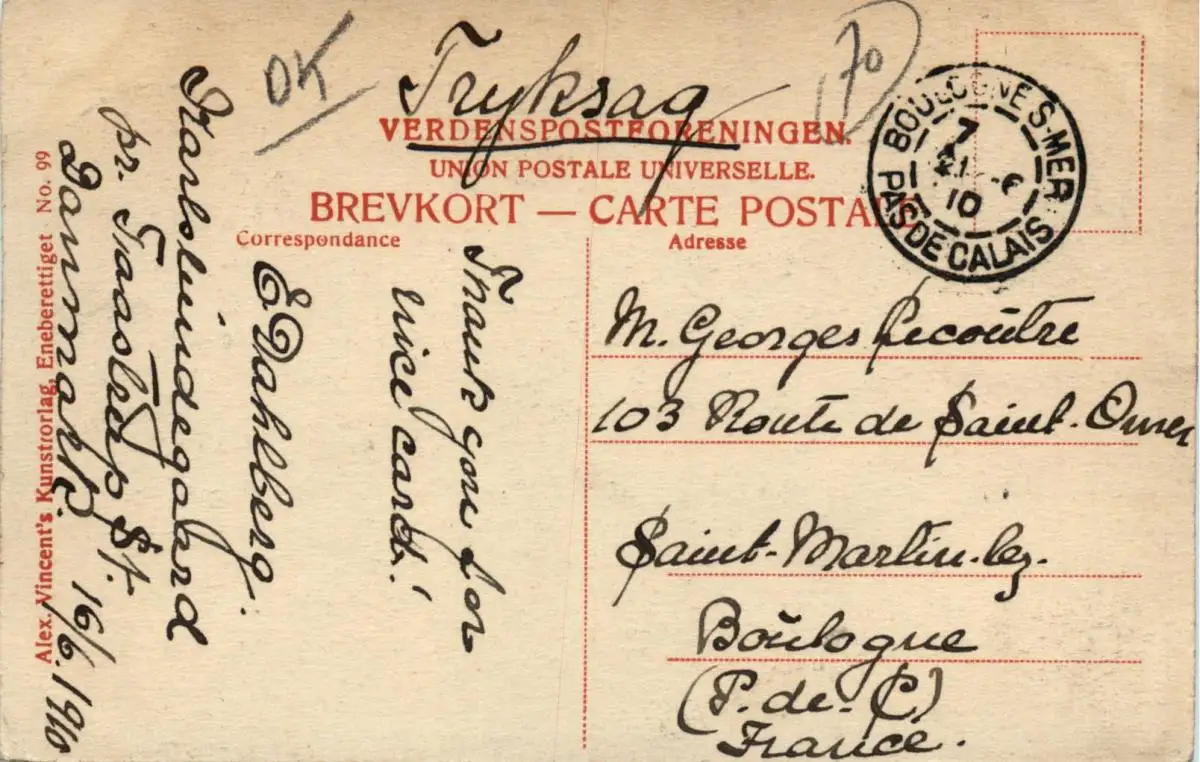 DK
Tryksag
70
VERDENSPOSTFORENINGEN.
UNION POSTALE UNIVERSELLE.
BREVKORT — CARTE POSTALE
Correspondance
Adresse
BOULOGNE-S-MER
7
21 -6
10
PAS DE CALAIS
Thank you for
nice card!
E Dahlberg.
Karlslundegaard
pr. Taastrup St.
Danmark. 16/6. 1910
Alex. Vincent's Kunstforlag, Eneberettiget No. 99
M. Georges Lecoûtre
103 Route de Saint-Omer
Saint-Martin-lez-
Boulogne
(P.-de-C)
France.